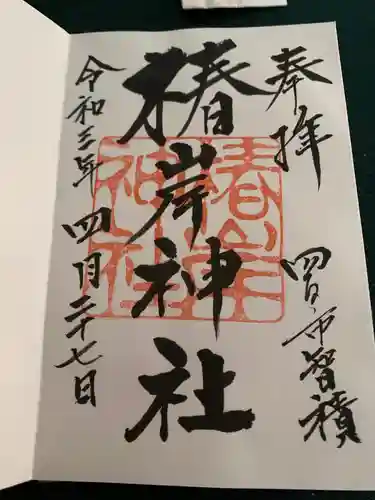 奉拝
四日市智積
椿岸神社
令和三年四月二十七日
椿岸
神社